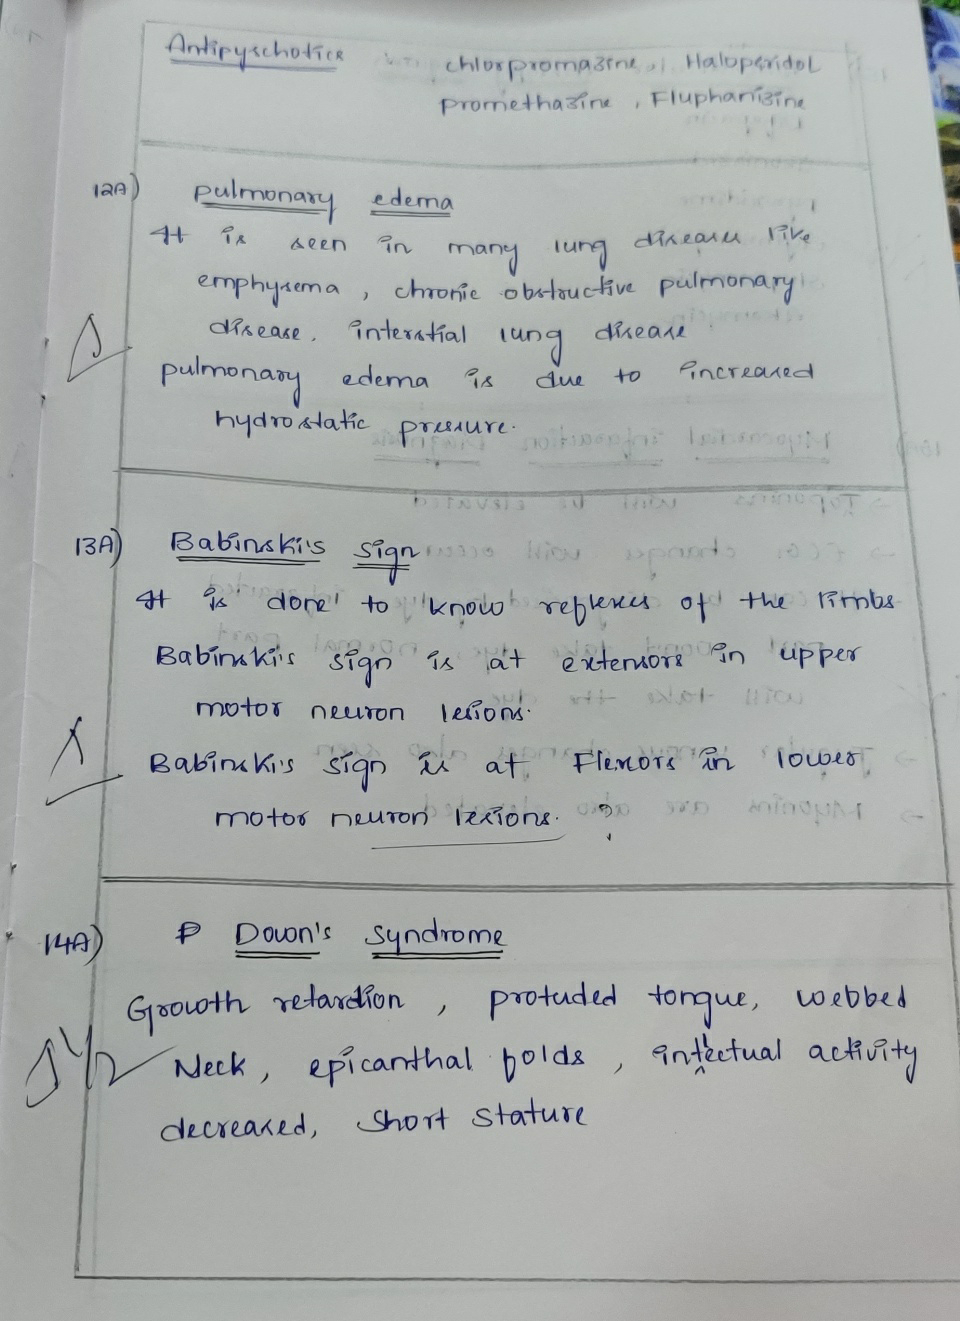 Antipyschotics chlorpromazine, Haloperidol
promethazine, Fluphanizine
12A) pulmonary edema
It is seen in many lung diseases like
emphysema, chronic obstructive pulmonary
disease, interstial lung disease
pulmonary edema is due to increased
hydrostatic pressure.
13A) Babinski's sign
It is done to know reflexes of the limbs
Babinski's sign is at extensors in upper
motor neuron lesions.
Babinski's sign is at Flexors in lower
motor neuron lesions. ?
14A) Down's syndrome
Growth retardtion, protuded tongue, webbed
Neck, epicanthal folds, intellectual activity
decreased, short stature